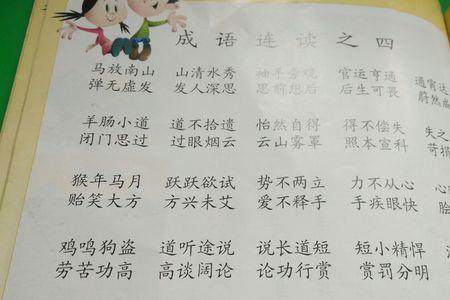 成语连读之四
马放南山 山清水秀 袖手旁观 官运亨通 通宵达
弹无虚发 发人深思 思前想后 后生可畏 蔚然
羊肠小道 道不拾遗 怡然自得 得不偿失 失之
闭门思过 过眼烟云 云山雾罩 照本宣科 苛
猴年马月 跃跃欲试 势不两立 力不从心 心
贻笑大方 方兴未艾 爱不释手 手疾眼快 脍
鸡鸣狗盗 道听途说 说长道短 短小精悍
劳苦功高 高谈阔论 论功行赏 赏罚分明